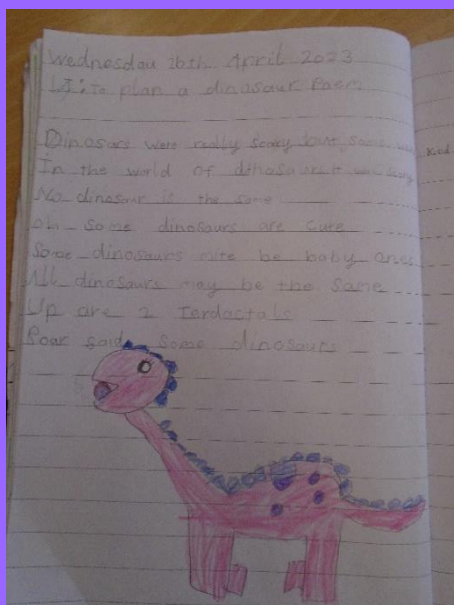 Wednesday 26th April 2023
LI: To plan a dinosaur Poem
Dinosars were really scary but some kind
In the world of dinosaurs it was scary
No dinosaur is the same
oh some dinosaurs are cute
Some dinosaurs mite be baby ones
All dinosaurs may be the same
Up are 2 Terdactals
Roar said some dinosaurs